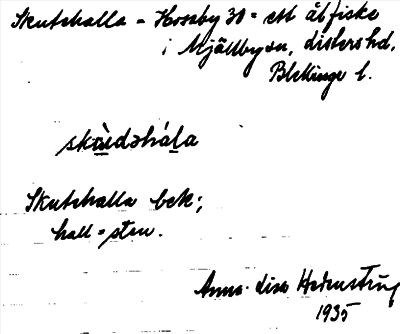 Skutehalla - Horsby 30 = ett ålfiske
i Mjällby sn, Listers hd,
Blekinge l.
skùdəháḷa
Skutehalla bek;
hall = sten.
Anna-Lisa Hedenstrug
1935